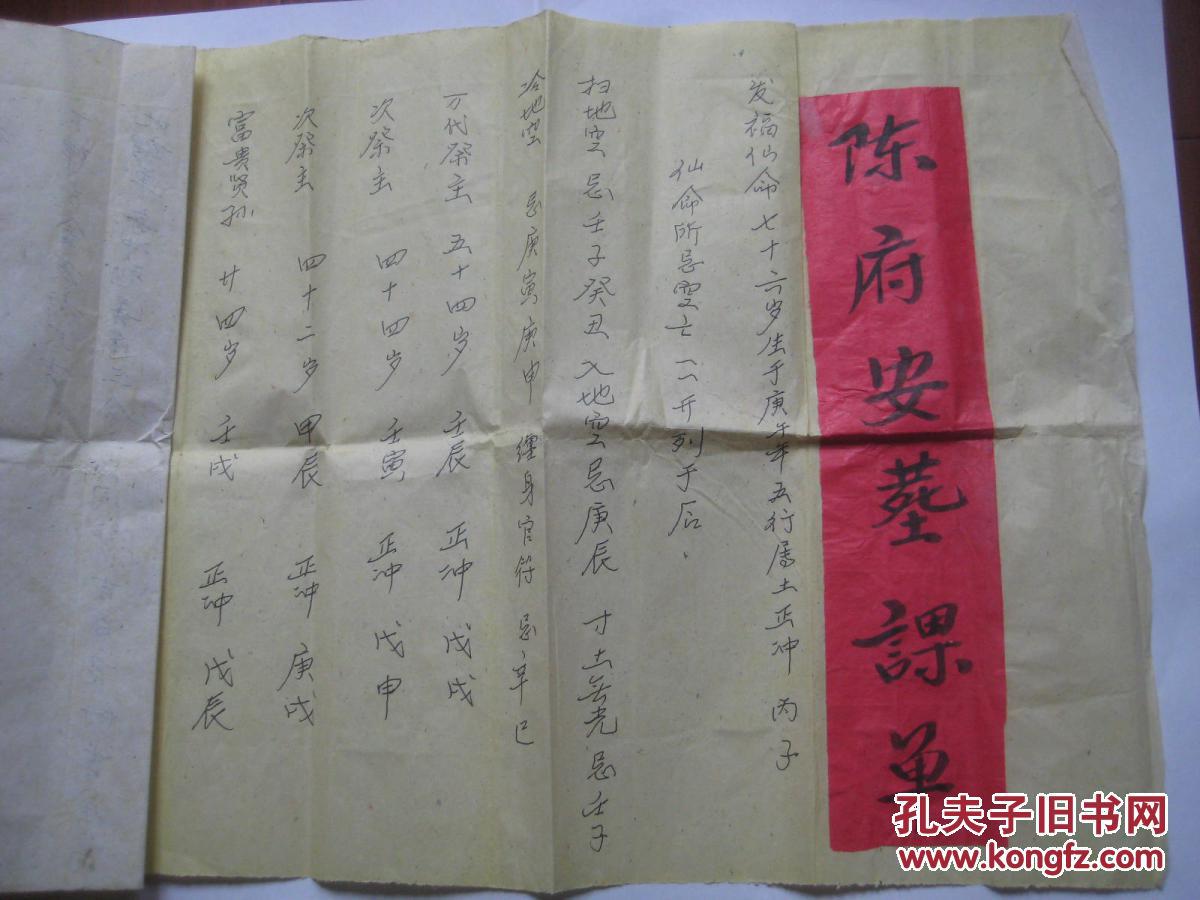 陈府安墓課单
发福仙命七十六岁生于庚午年五行属土正冲 丙子
仙命所忌空亡一一开列于后、
扫地空忌壬子癸丑 入地空忌庚辰 寸土无光忌壬子
冷地空 忌庚寅庚申 缠身官符 忌辛巳
万代祭主 五十四岁 壬辰 正冲 戊戌
次祭主 四十四岁 壬寅 正冲 戊申
次祭主 四十二岁 甲辰 正冲 庚戌
富貴贤孙 廿四岁 壬戌 正冲 戊辰
孔夫子旧书网
www.kongfz.com